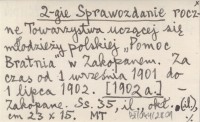 2-gie Sprawozdanie rocz-
ne Towarzystwa uczącej się
młodzieży polskiej „Pomoc
Bratnia" w Zakopanem. Za
czas od 1 września 1901 do
1 lipca 1902. [1902 a.] —
Zakopane. Ss. 35, il., okł. (il),
cm 23 x 15. MT